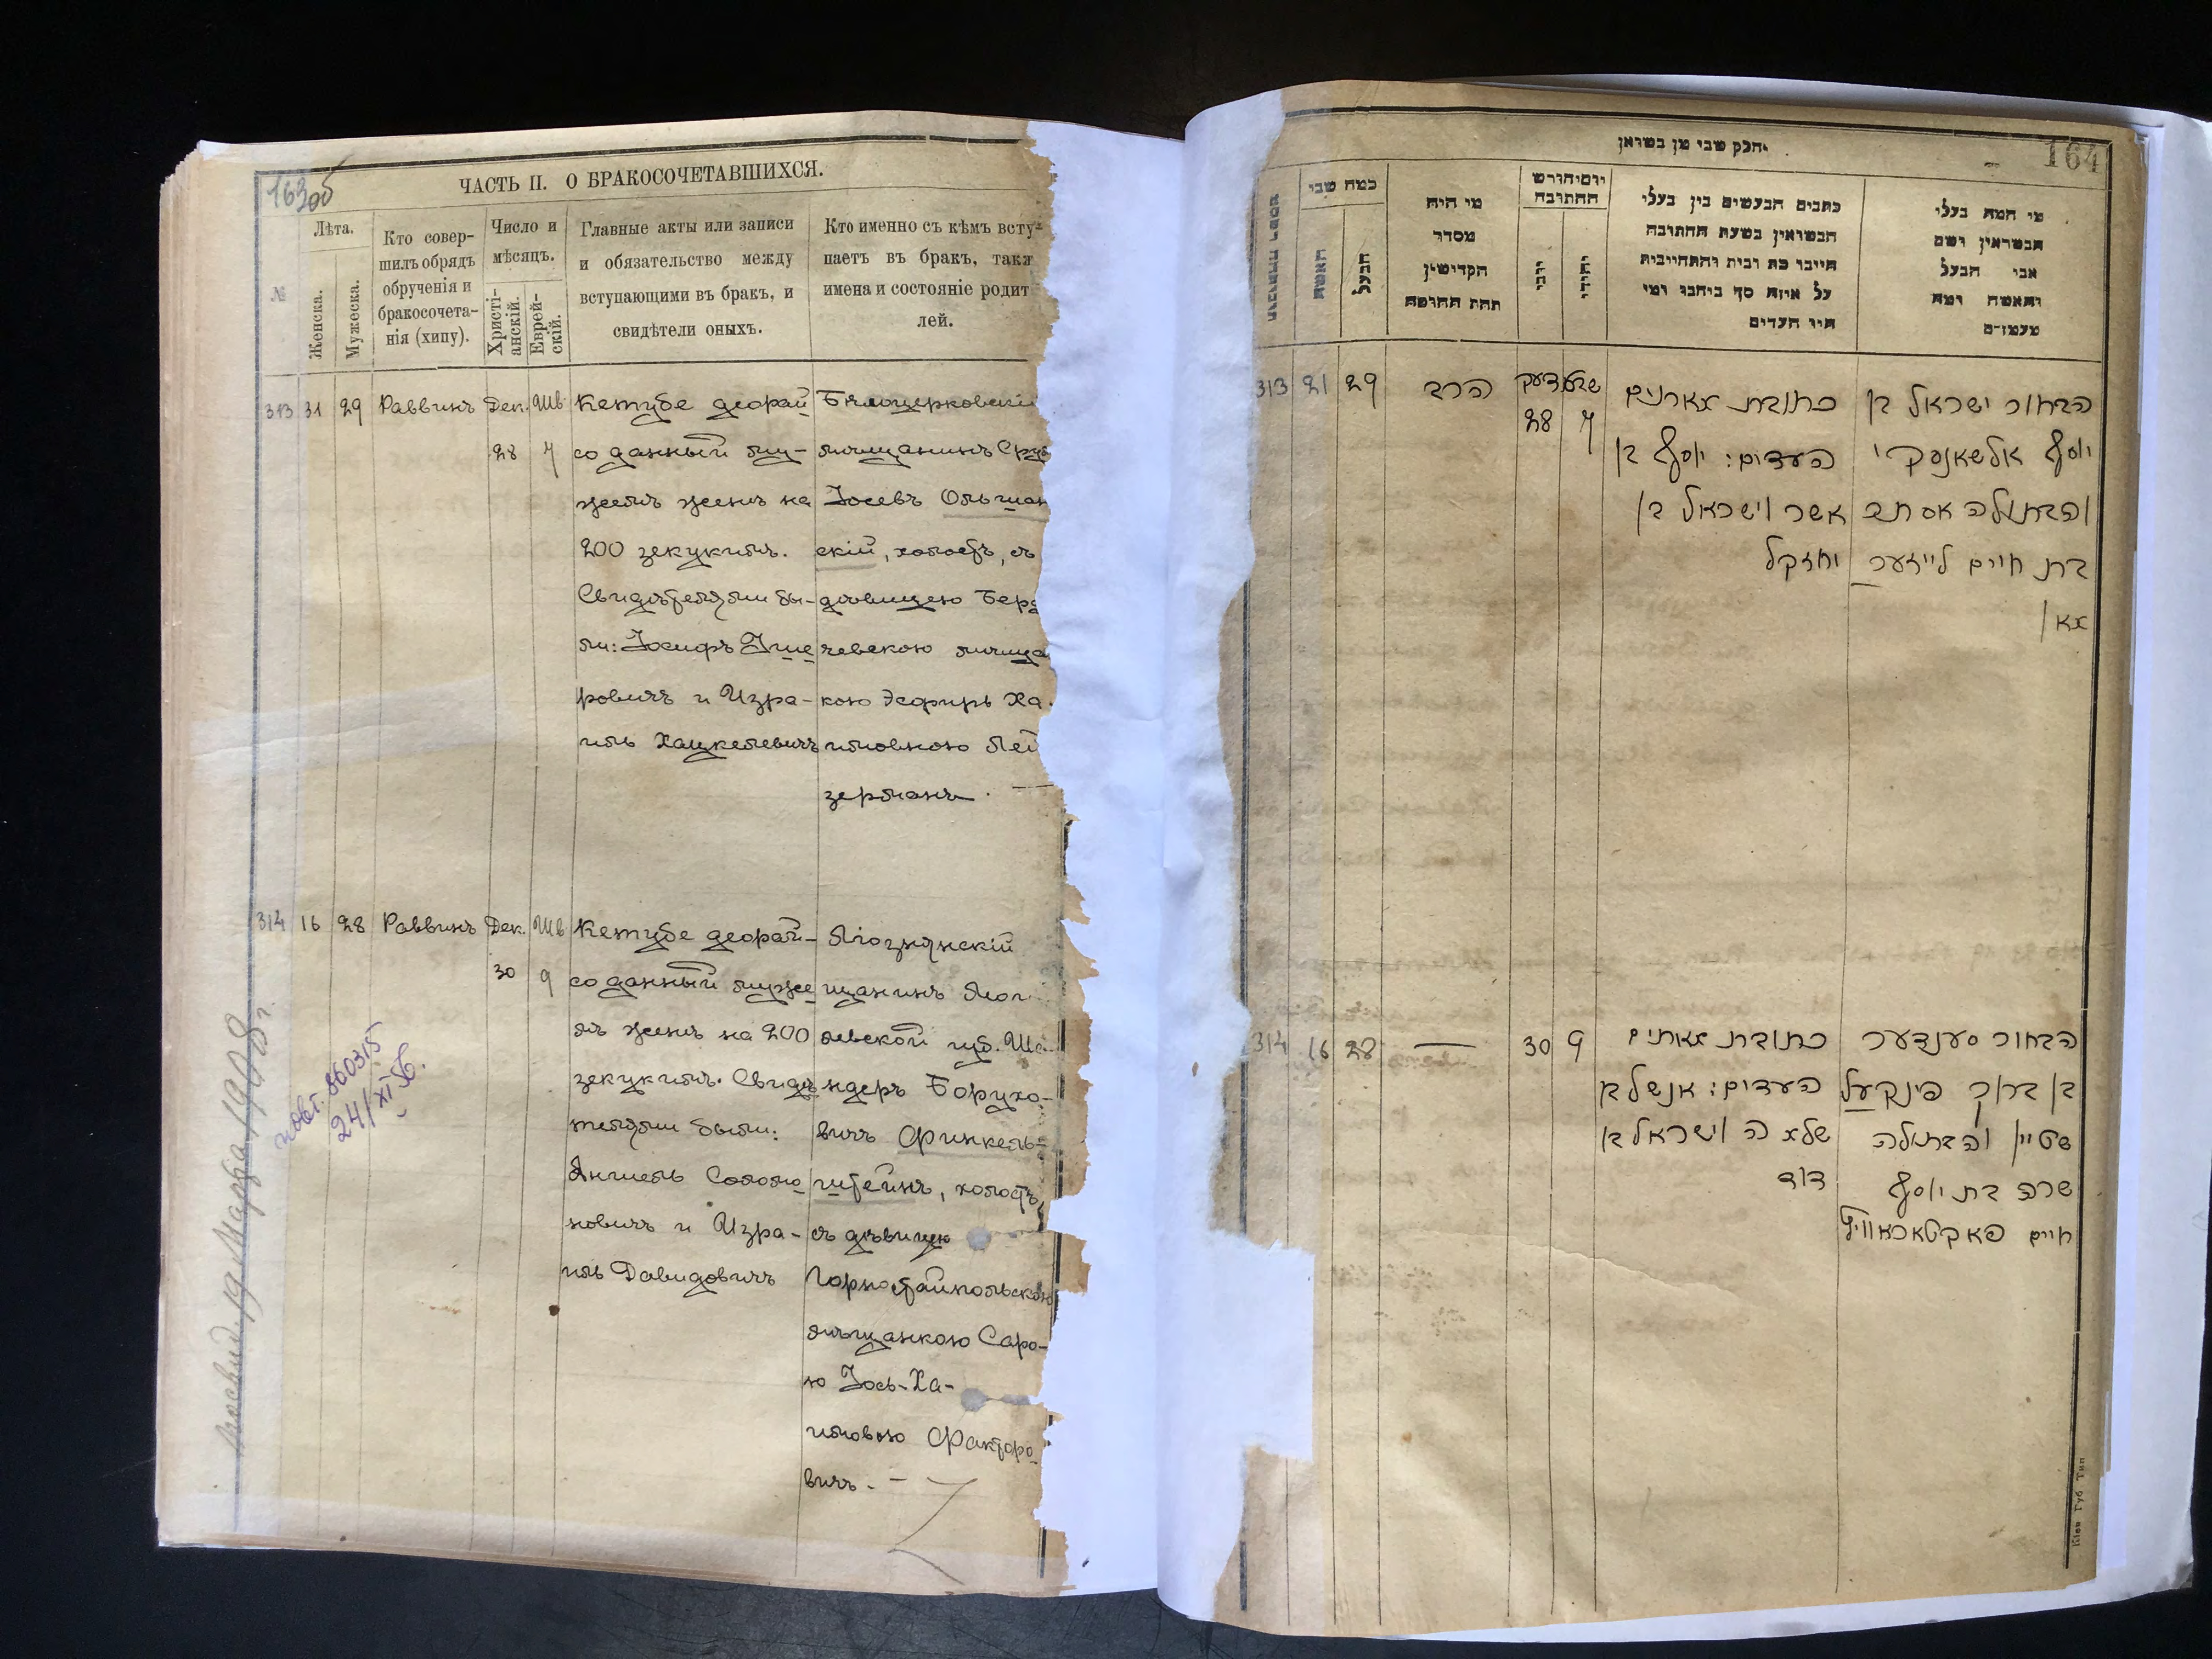 163об
ЧАСТЬ II. О БРАКОСОЧЕТАВШИХСЯ.
№
Лѣта.
Женска.
Мужеска.
Кто совер-
шилъ обрядъ
обрученія и
бракосочета-
нія (хипу).
Число и
мѣсяцъ.
Христі-
анскій.
Еврей-
скій.
Главные акты или записи
и обязательство между
вступающими въ бракъ, и
свидѣтели оныхъ.
Кто именно съ кѣмъ всту-
паетъ въ бракъ, также
имена и состояніе родит
лей.
313 31 29 Раввинъ Дек. Шв
28 7
Кетубе деорай
со данный му-
жемъ женѣ на
200 зекукимъ.
Свидѣтелями бы-
ли: Іосифъ Уше
ровичъ и Изра-
иль Хацкелевичъ
Бѣлоцерковскій
мѣщанинъ Сруль
Іосевъ Ольшан
скій, холостъ, съ
дѣвицею Берд
чевскою мѣща
кою Эсфирь Ха
имовною Лей
зерманъ.
314 16 28 Раввинъ Дек. Шв
30 9
Кетубе деорай-
со данный муже
мъ женѣ на 200
зекукимъ. Свидѣ
телями были:
Аншель Соломо
новичъ и Изра-
иль Давидовичъ
Ліознянскій
щанинъ Мог
левской губ. Ше
ндеръ Борухо-
вичъ Финкель-
штейнъ, холостъ,
съ дѣвицею
Горностайпольскою
мѣщанкою Саро-
ю Іось-Ха-
имовною Факторо
вичъ. —
19 Марта 1908 г.
повт. 860315
24/XI 56.
חלק שני מן נשואין
164
כמה שני
האשה
הבעל
מי היה
מסדר
הקדושין
תחת החופה
יום וחודש
החתונה
יוני
יהודי
כתבים הנעשים בין בעלי
הנשואין בשעת החתונה
חייבו כת ובית והתחייבית
על איזה סך ביתבו ומי
היו העדים
מי המה בעלי
הנשואין ושם
אבי הבעל
והאשה ומה
מעמדם
313 21 29 הרב
28 7
כתובת מאתים
העדים: יוסף בן
אשר וישראל בן
יחזקל
הבחור ישראל בן
יוסף אלשאנסקי
והבתולה אסתר
בת חיים לייזער
מאן
314 16 28 — 30 9
כתובת מאתים
העדים: אנשל בן
שלמה וישראל בן
דוד
הבחור סענדער
בן ברוך פינקעל
שטיין והבתולה
שרה בת יוסף
חיים פאקטאראוויץ
Кіев Губ Тип